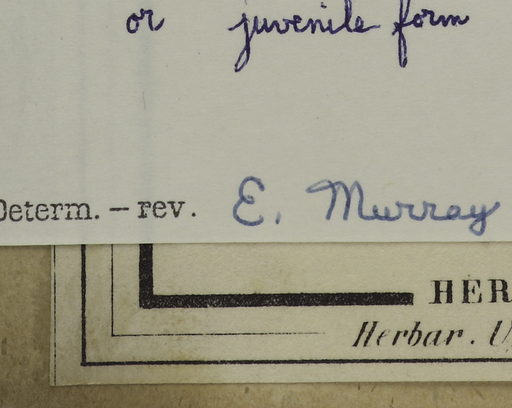 or juvenile form
Determ. — rev. E. Murray
HER
Herbar. U